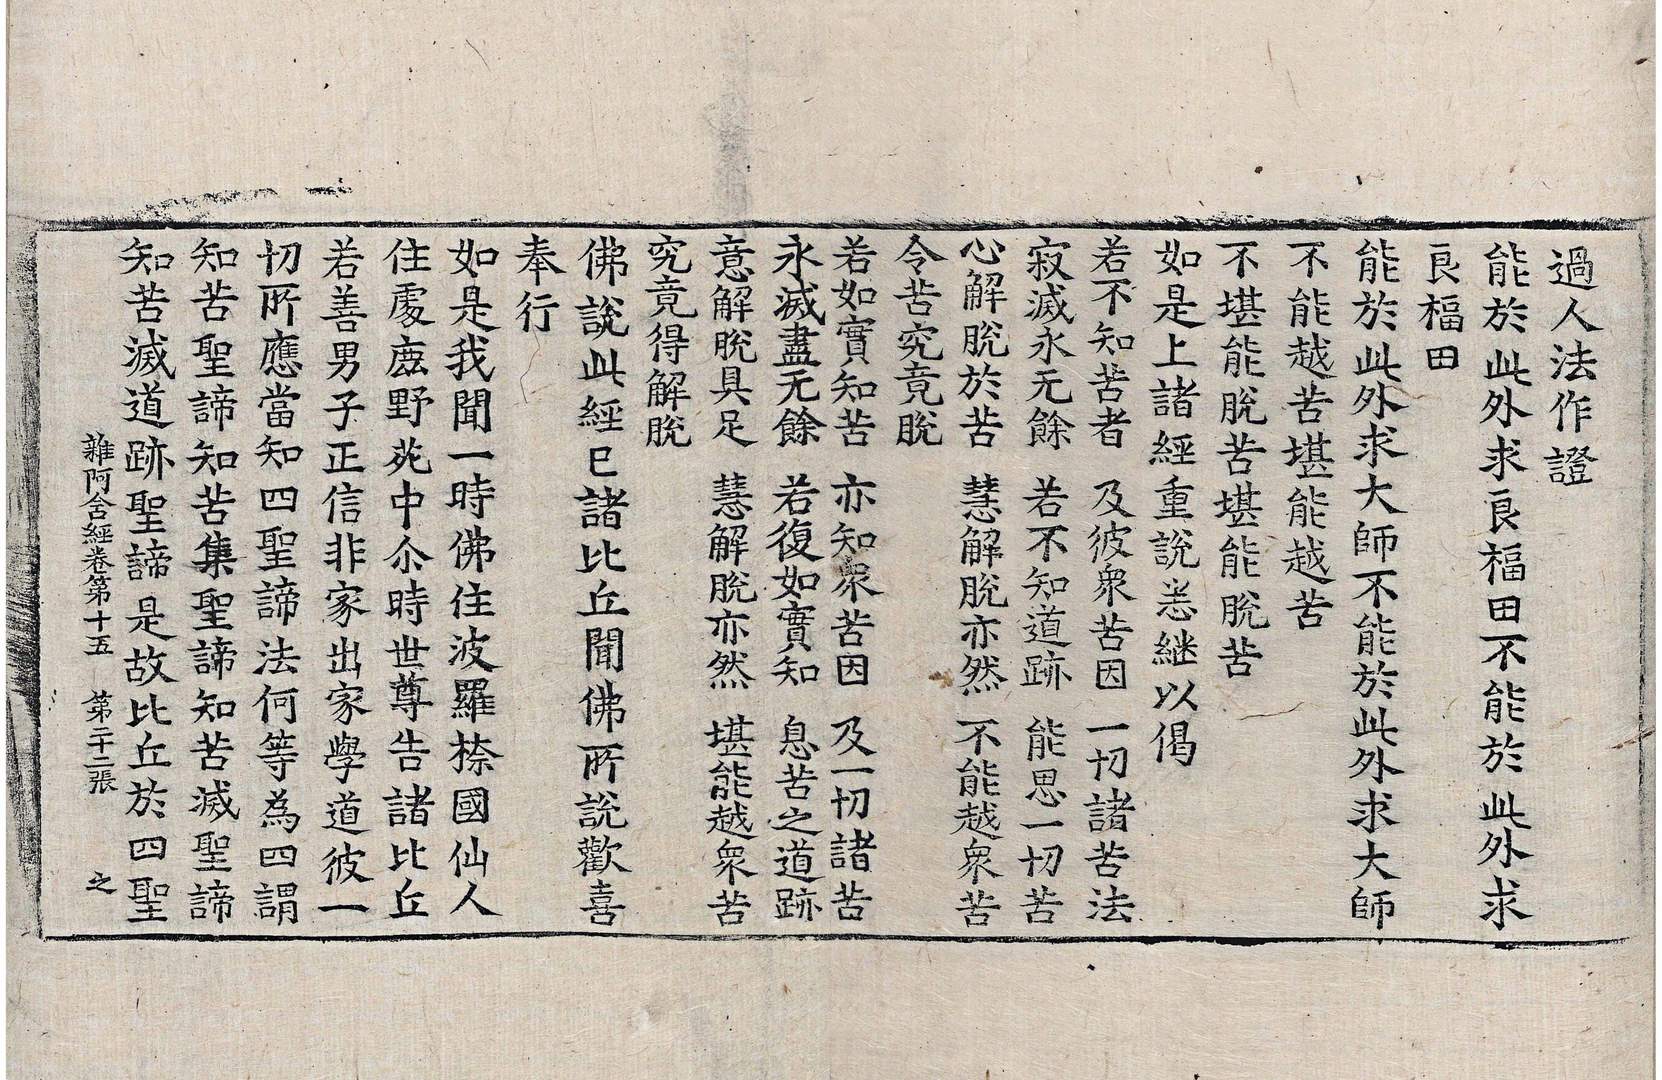 過人法作證
能於此外求良福田不能於此外求
良福田
能於此外求大師不能於此外求大師
不能越苦堪能越苦
不堪能脫苦堪能脫苦
如是上諸經重說悉繼以偈
若不知苦者 及彼衆苦因 一切諸苦法
寂滅永无餘 若不知道跡 能思一切苦
心解脫於苦 慧解脫亦然 不能越衆苦
令苦究竟脫
若如實知苦 亦知衆苦因 及一切諸苦
永滅盡无餘 若復如實知 息苦之道跡
意解脫具足 慧解脫亦然 堪能越衆苦
究竟得解脫
佛說此經已諸比丘聞佛所說歡喜
奉行
如是我聞一時佛住波羅㮈國仙人
住處鹿野苑中尒時世尊告諸比丘
若善男子正信非家出家學道彼一
切所應當知四聖諦法何等為四謂
知苦聖諦知苦集聖諦知苦滅聖諦
知苦滅道跡聖諦是故比丘於四聖
雜阿含經卷第十五 第二十二張 之